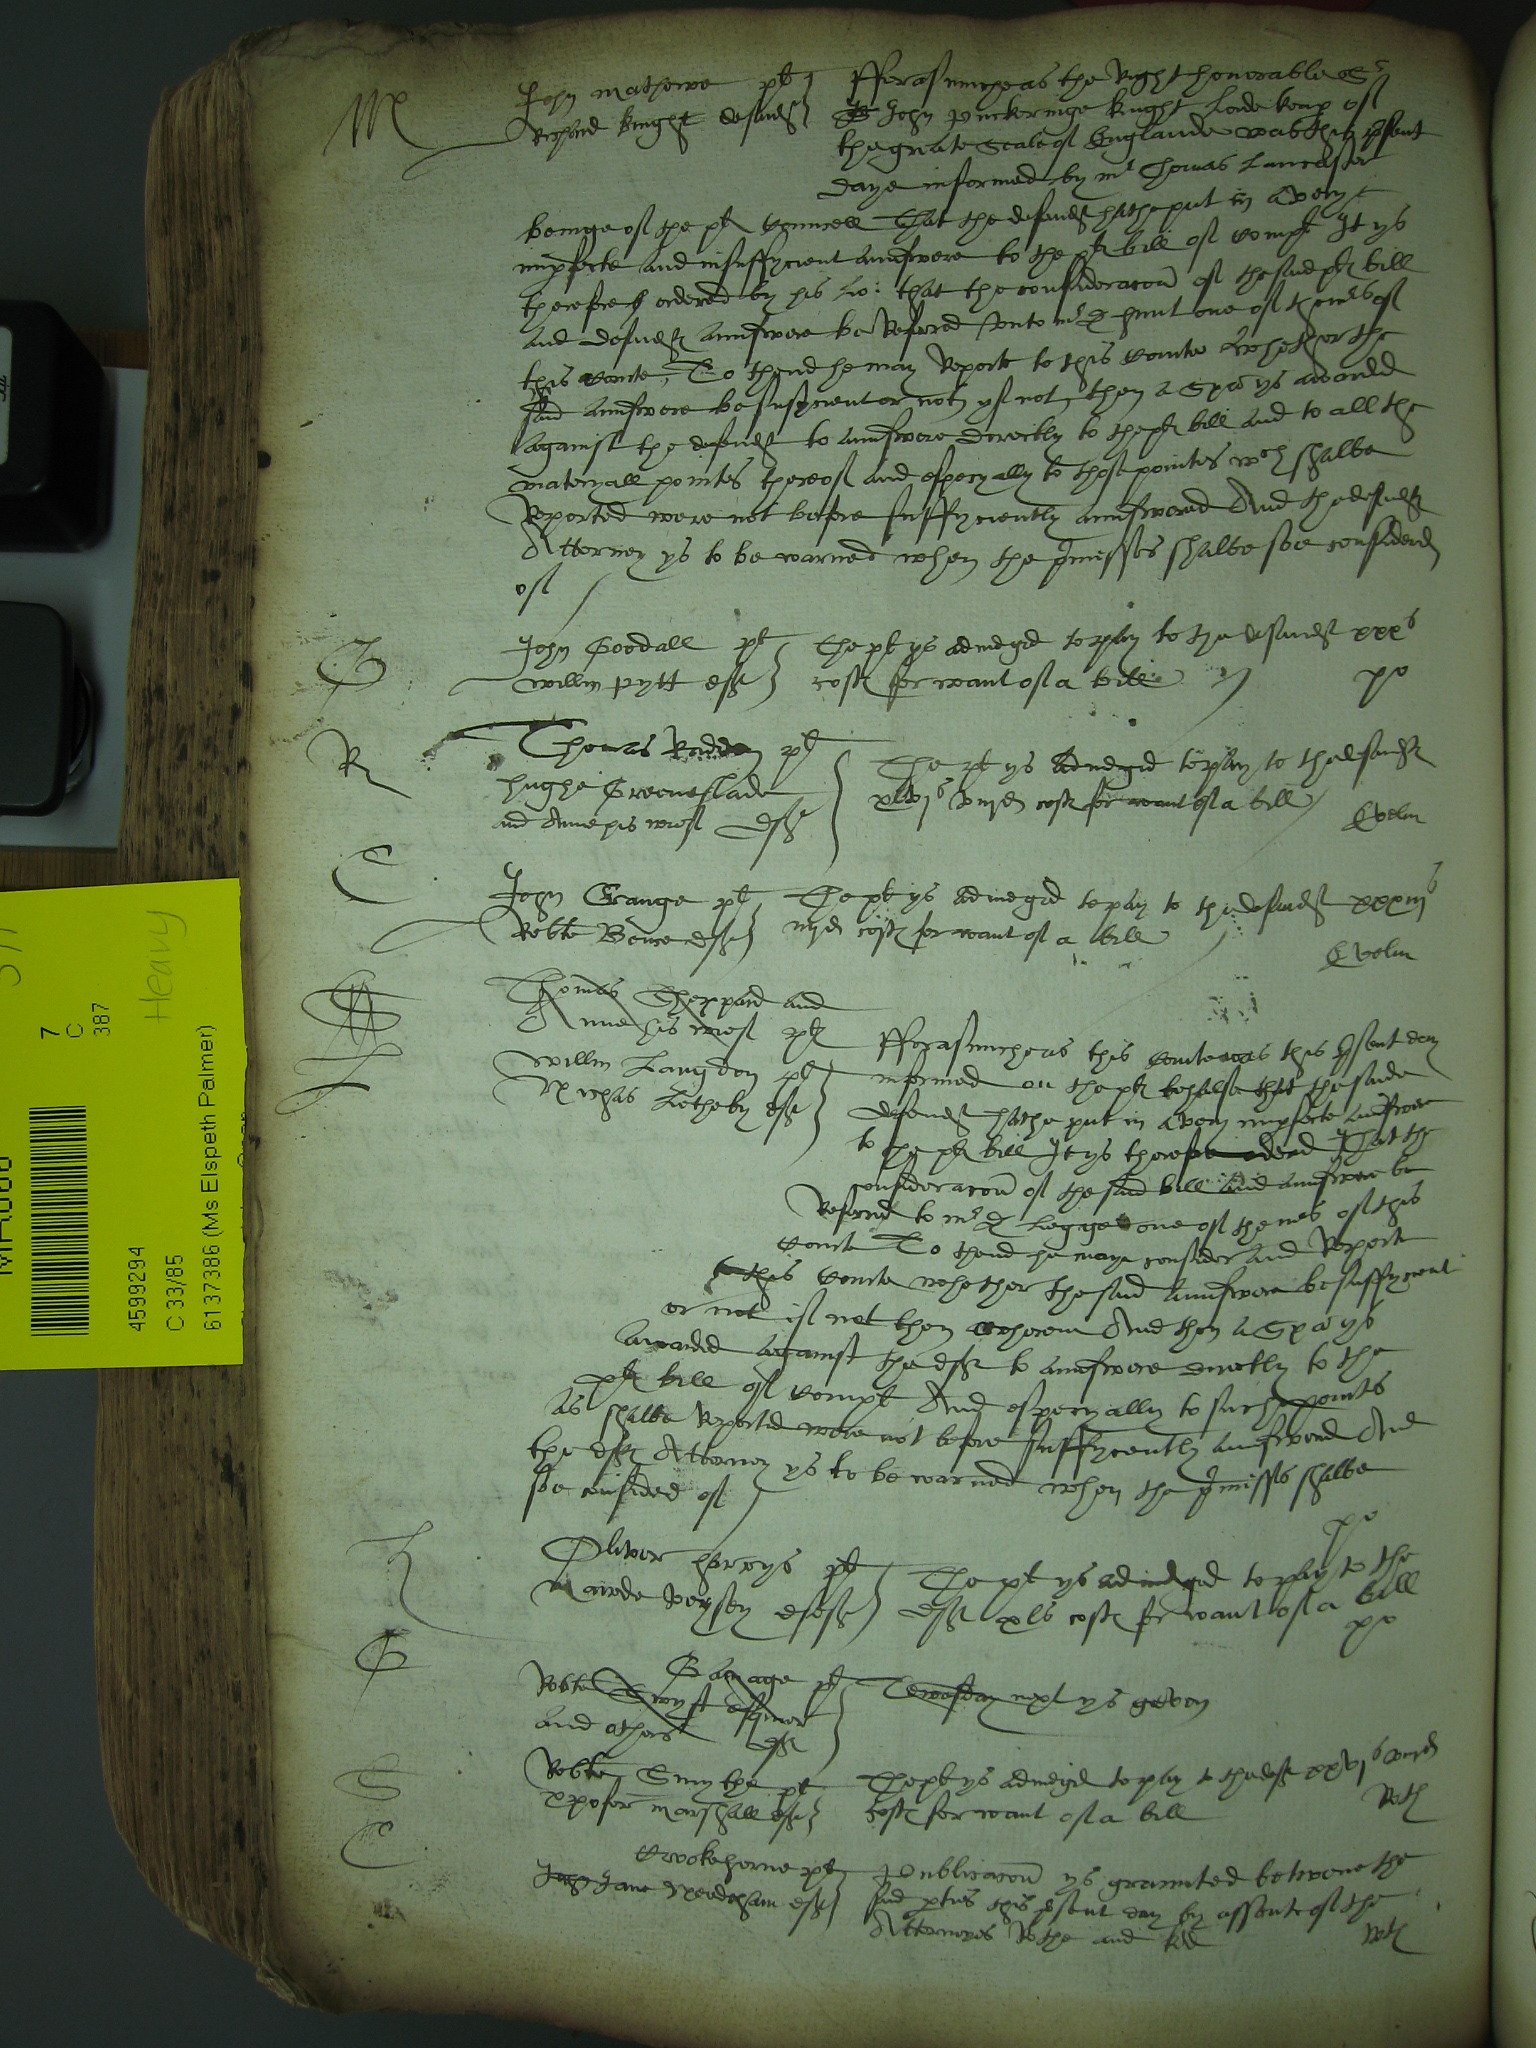 M
John Mathewe plt
Richard Knight defendt
Fforasmuche as the Right honorable Sr
John Puckeringe knight Lorde keap of
the greate Seale of Englande was this psent
daye informed by mr Thomas Lancaster
beinge of the plt councell That the defendt hathe put in a very
impfecte and insuffycient aunswere to the plt bill of compt It ys
therefore ordered by his Lo: that the consideracon of the said plt bill
and defendt aunswere be Refered unto mr D Hunt one of the mrs of
this courte, To thend he may Reporte to this courte whether the
said aunswere be sufficient or not, yf not, then a Spa ys awarded
against the defendt to aunswere directly to the plt bill and to all the
materyall pointes thereof and especyally to those pointes wch shalbe
Reported were not before suffycyently aunswered And the defendt
Attorney ys to be warned when the pmisses shalbe soe considered
of
G
John Goodall plt
Willm Pytt deft
The plt ys adiudged to pay to the defendt xxxs
costs for want of a bill
po
R
Thomas Radden plt
Hughe Greeneslade
and Anne his wief deft
The plt ys adiudged to pay to the defendt
xlvjs viijd costs for want of a bill
Evelin
C
John Grange plt
Robte Bonce deft
The plt ys adiudged to pay to the defendt xxxiijs
iiijd costs for want of a bill
Evelin
S
Thomas Sheppard and
Anne his wief plt
L
Willm Langdon plt
Nichas Letheby deft
Fforasmuche as this courte was this psent day
informed on the plt behalfe that the saide
defendt hathe put in a very impfecte aunswere
to the plt bill It ys therefore ordered That the
consideracon of the said bill and aunswere be
Refered to mr D Legge one of the mrs of this
courte To thend he maye consider and Reporte
to this courte whether the said aunswere be suffycyent
or not if not then wherein And then a Spa ys
awarded against the deft to aunswere directly to the
plt bill of compt And especyally to suche pointes
as shalbe Reported were not before suffycyently aunswered And
the deft Attorney ys to be warned when the pmisses shalbe
soe considred of
po
H
Oliver Harrys plt
Maude Veysey deft
The plt ys adiudged to pay to the
deft xls costs for want of a bill
po
G
Gamage plt
Robte Swyft esquior
and others deft
Tewesday next ys geven
S
Robte Smythe plt
xpofer Marshall deft
The plt ys adiudged to pay to the deft xxvjs viijd
costs for want of a bill
Roth
C
Crokehorne plt
Jane Needeham deft
Publicacon ys graunted betwene the
said pties this psent day by assente of the
Attorneyes Rothe and
Roth
7
C
387
Heavy
4599294
C 33/85
6137386 (Ms Elspeth Palmer)